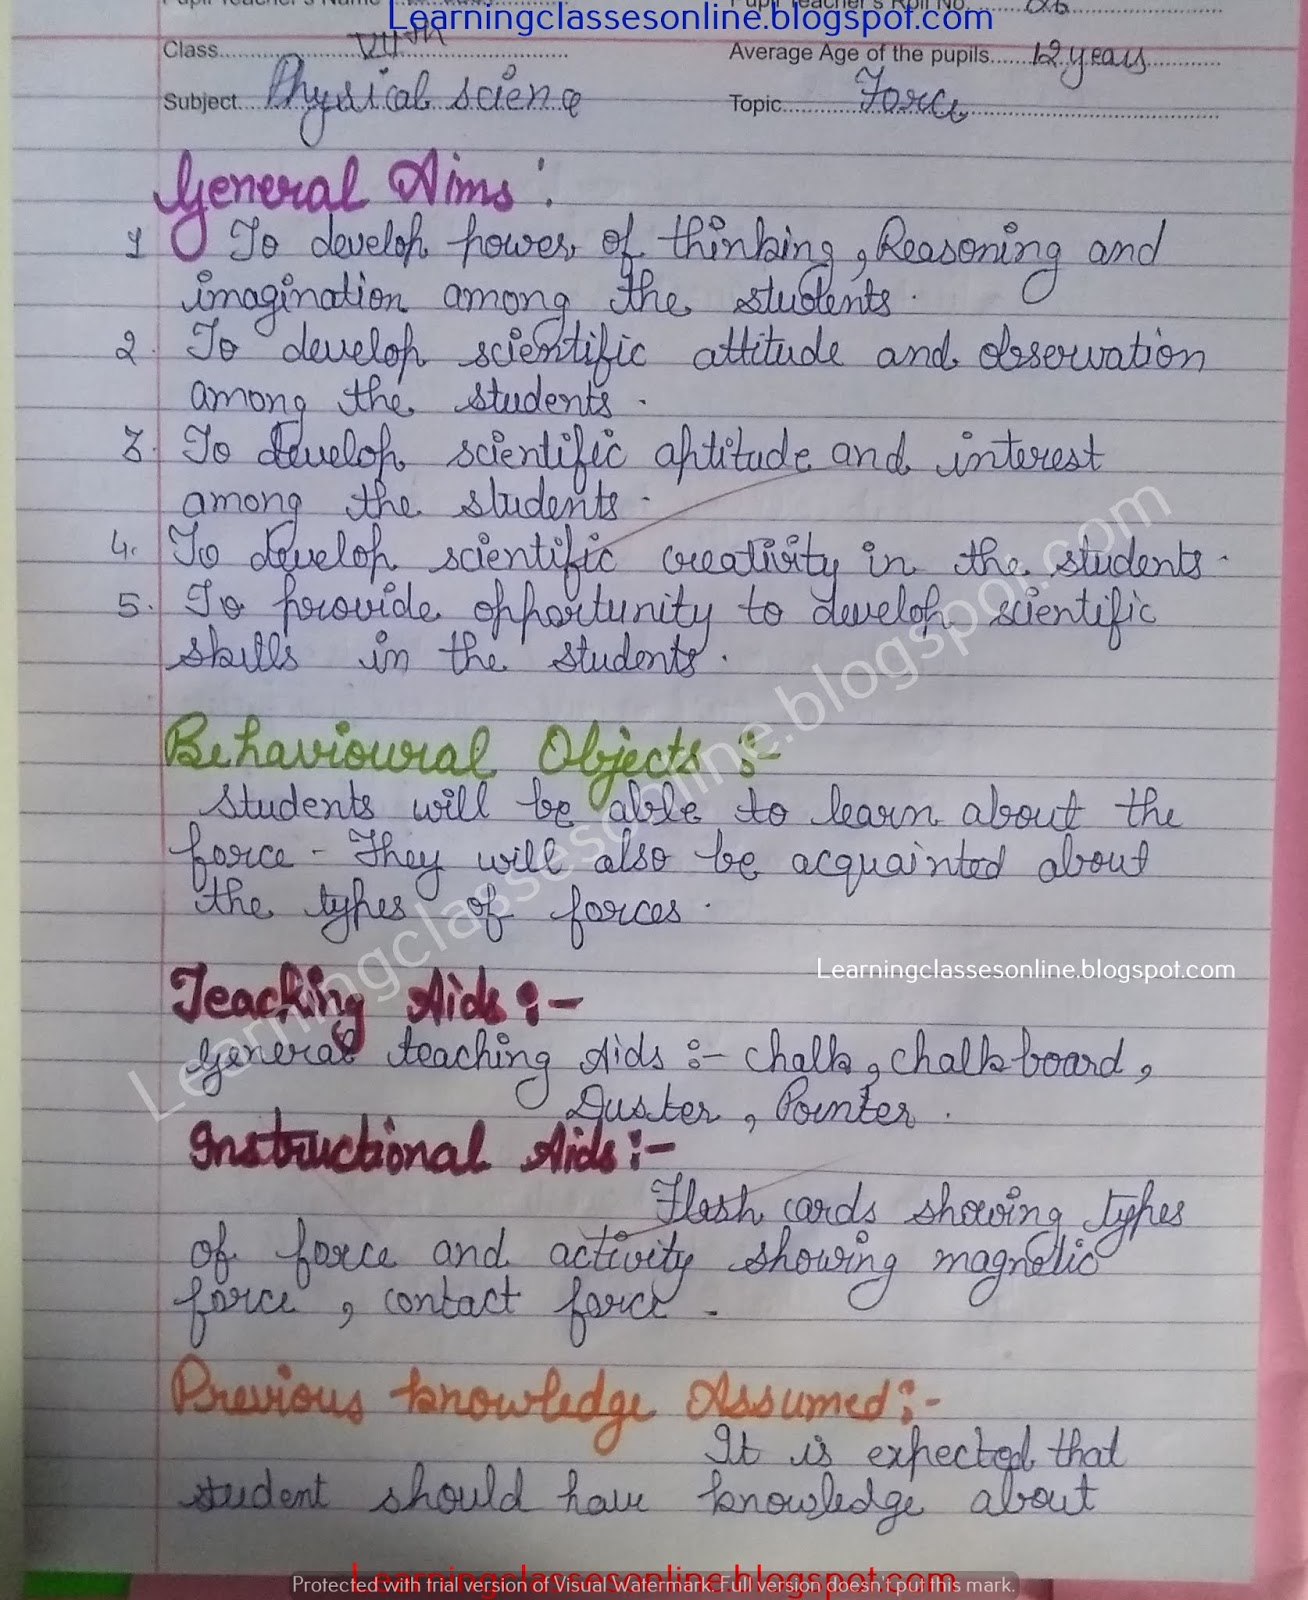 Learningclassesonline.blogspot.com
Class VIIth Average Age of the pupils 12 years
Subject Physical science Topic Force
General Aims :
1 To develop power of thinking, Reasoning and
imagination among the students.
2. To develop scientific attitude and observation
among the students.
3. To develop scientific aptitude and interest
among the students.
4. To develop scientific creativity in the students.
5. To provide opportunity to develop scientific
skills in the students.
Behavioural Objects :-
Students will be able to learn about the
force - They will also be acquainted about
the types of forces.
Learningclassesonline.blogspot.com
Learningclassesonline.blogspot.com
Teaching Aids :-
General teaching Aids :- chalk, chalkboard,
Duster, Pointer.
Instructional Aids :-
Flash cards showing types
of force and activity showing magnetic
force, contact force.
Previous knowledge Assumed :-
It is expected that
student should have knowledge about
Learningclassesonline.blogspot.com
Protected with trial version of Visual Watermark. Full version doesn't put this mark.